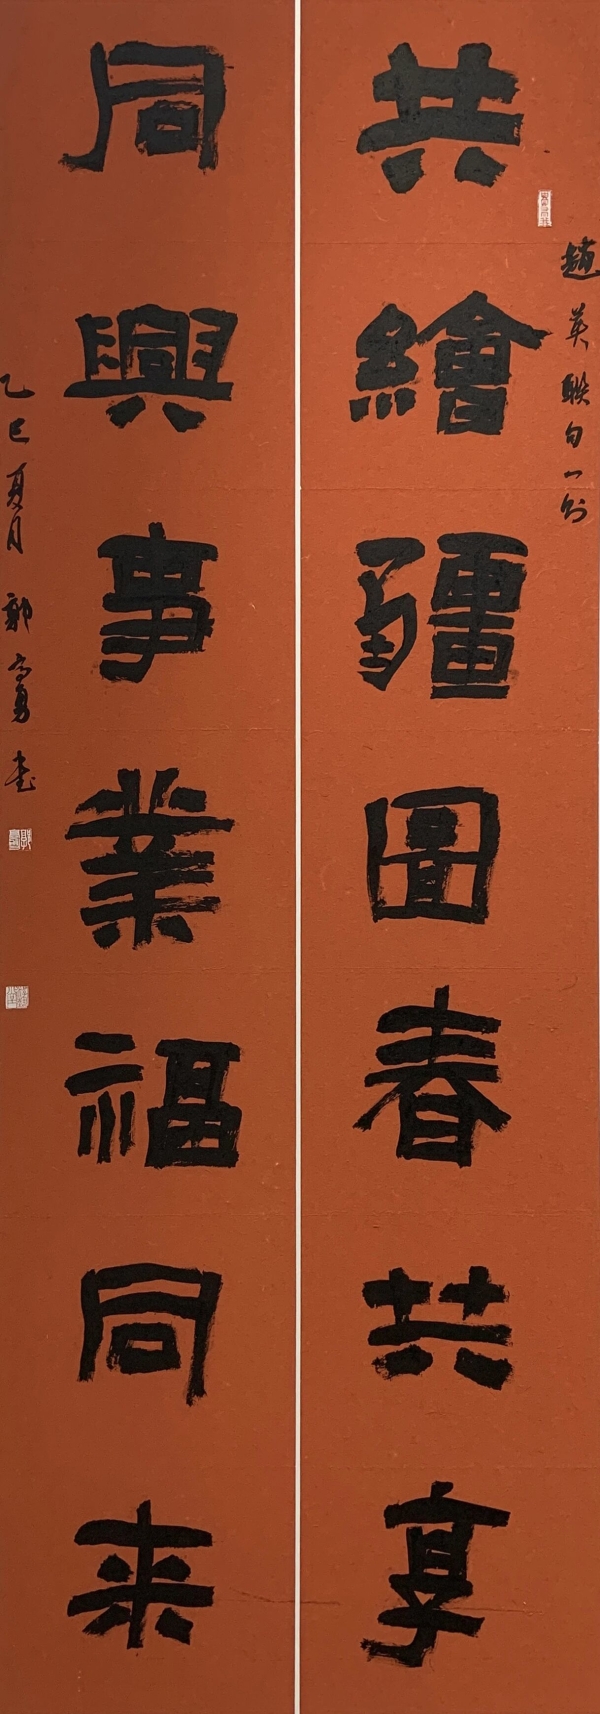 趙英聯句一則
共繪疆圖春共享
同興事業福同来
乙巳夏月郭高勇書